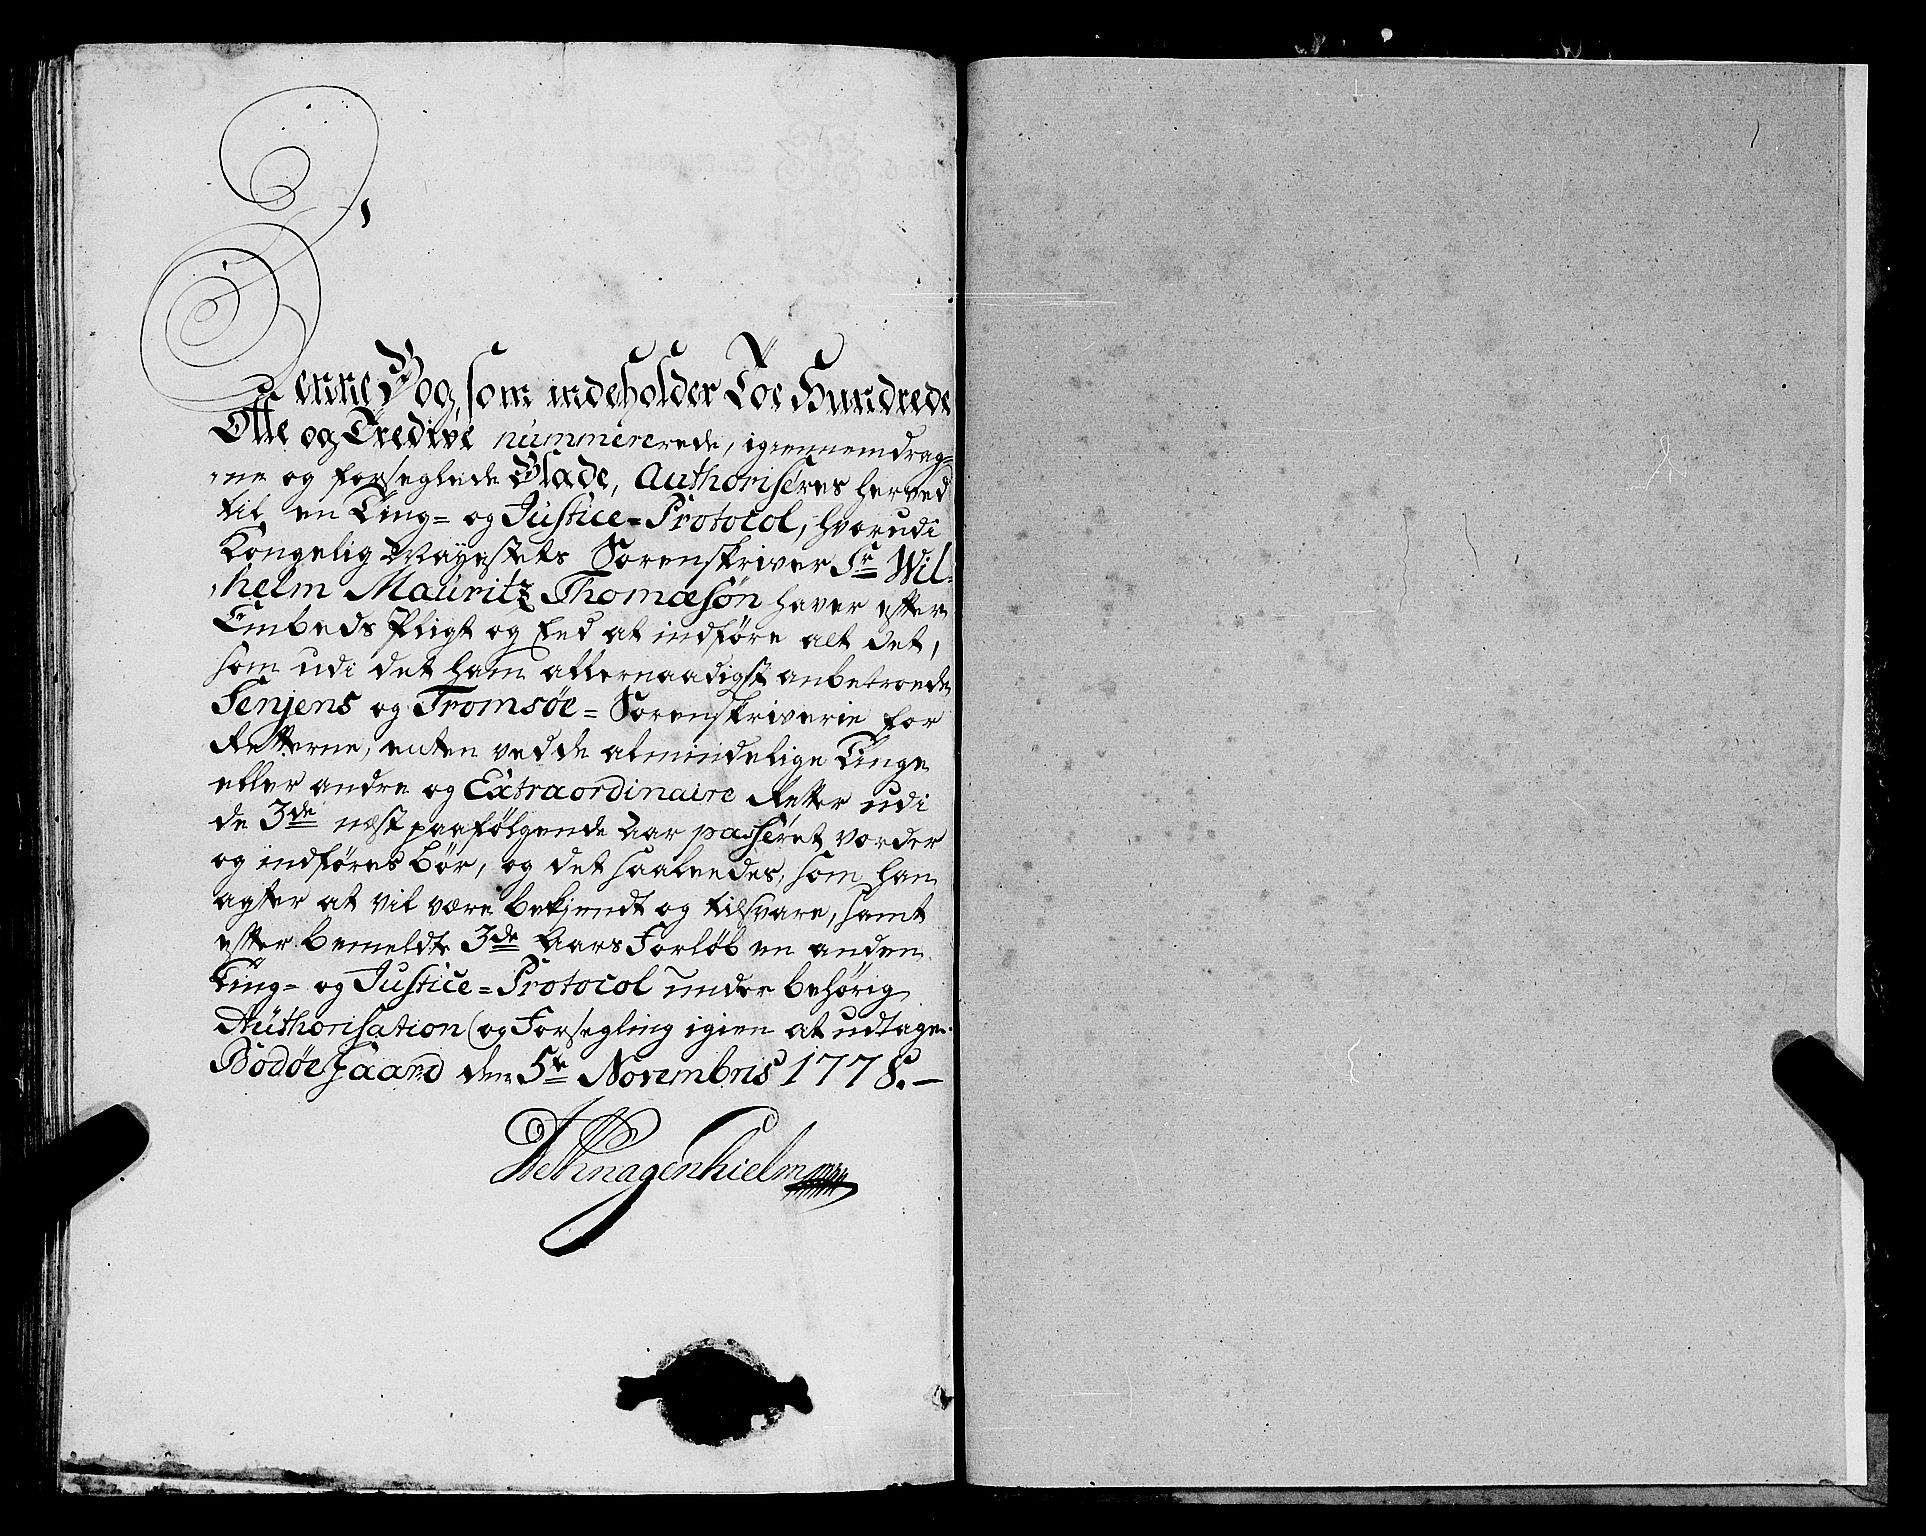 Denne Bog, som indeholder Toe Hundrede
Otte og Tredive nummererede, igiennemdrag=
ne og forseglede Blade, Authoriseres herved
til en Ting= og Justice=Protocol, hvorudi
Kongelig Mayestets Sorenskriver Sr Wil=
helm Mauritz Thomæsøn haver efter
Embeds Pligt og Eed at indføre alt det,
som udi det ham allernaadigst anbetroede
Senjens og Tromsøe= Sorenskriverie for
Retterne, enten ved de almindelige Tinge
eller andre og Extraordinaire Retter udi
de 3de næst paafølgende Aar passeret vorder
og indføres bør, og det saaledes, som han
agter at vil være bekjendt og tilsvare, samt
efter bemeldte 3de Aars Forløb en anden
Ting= og Justice=Protocol under behørig
Authorisation og Forsegling igien at udtage.
Bodøegaard den 5te Novembris 1778.
Hagenkielm